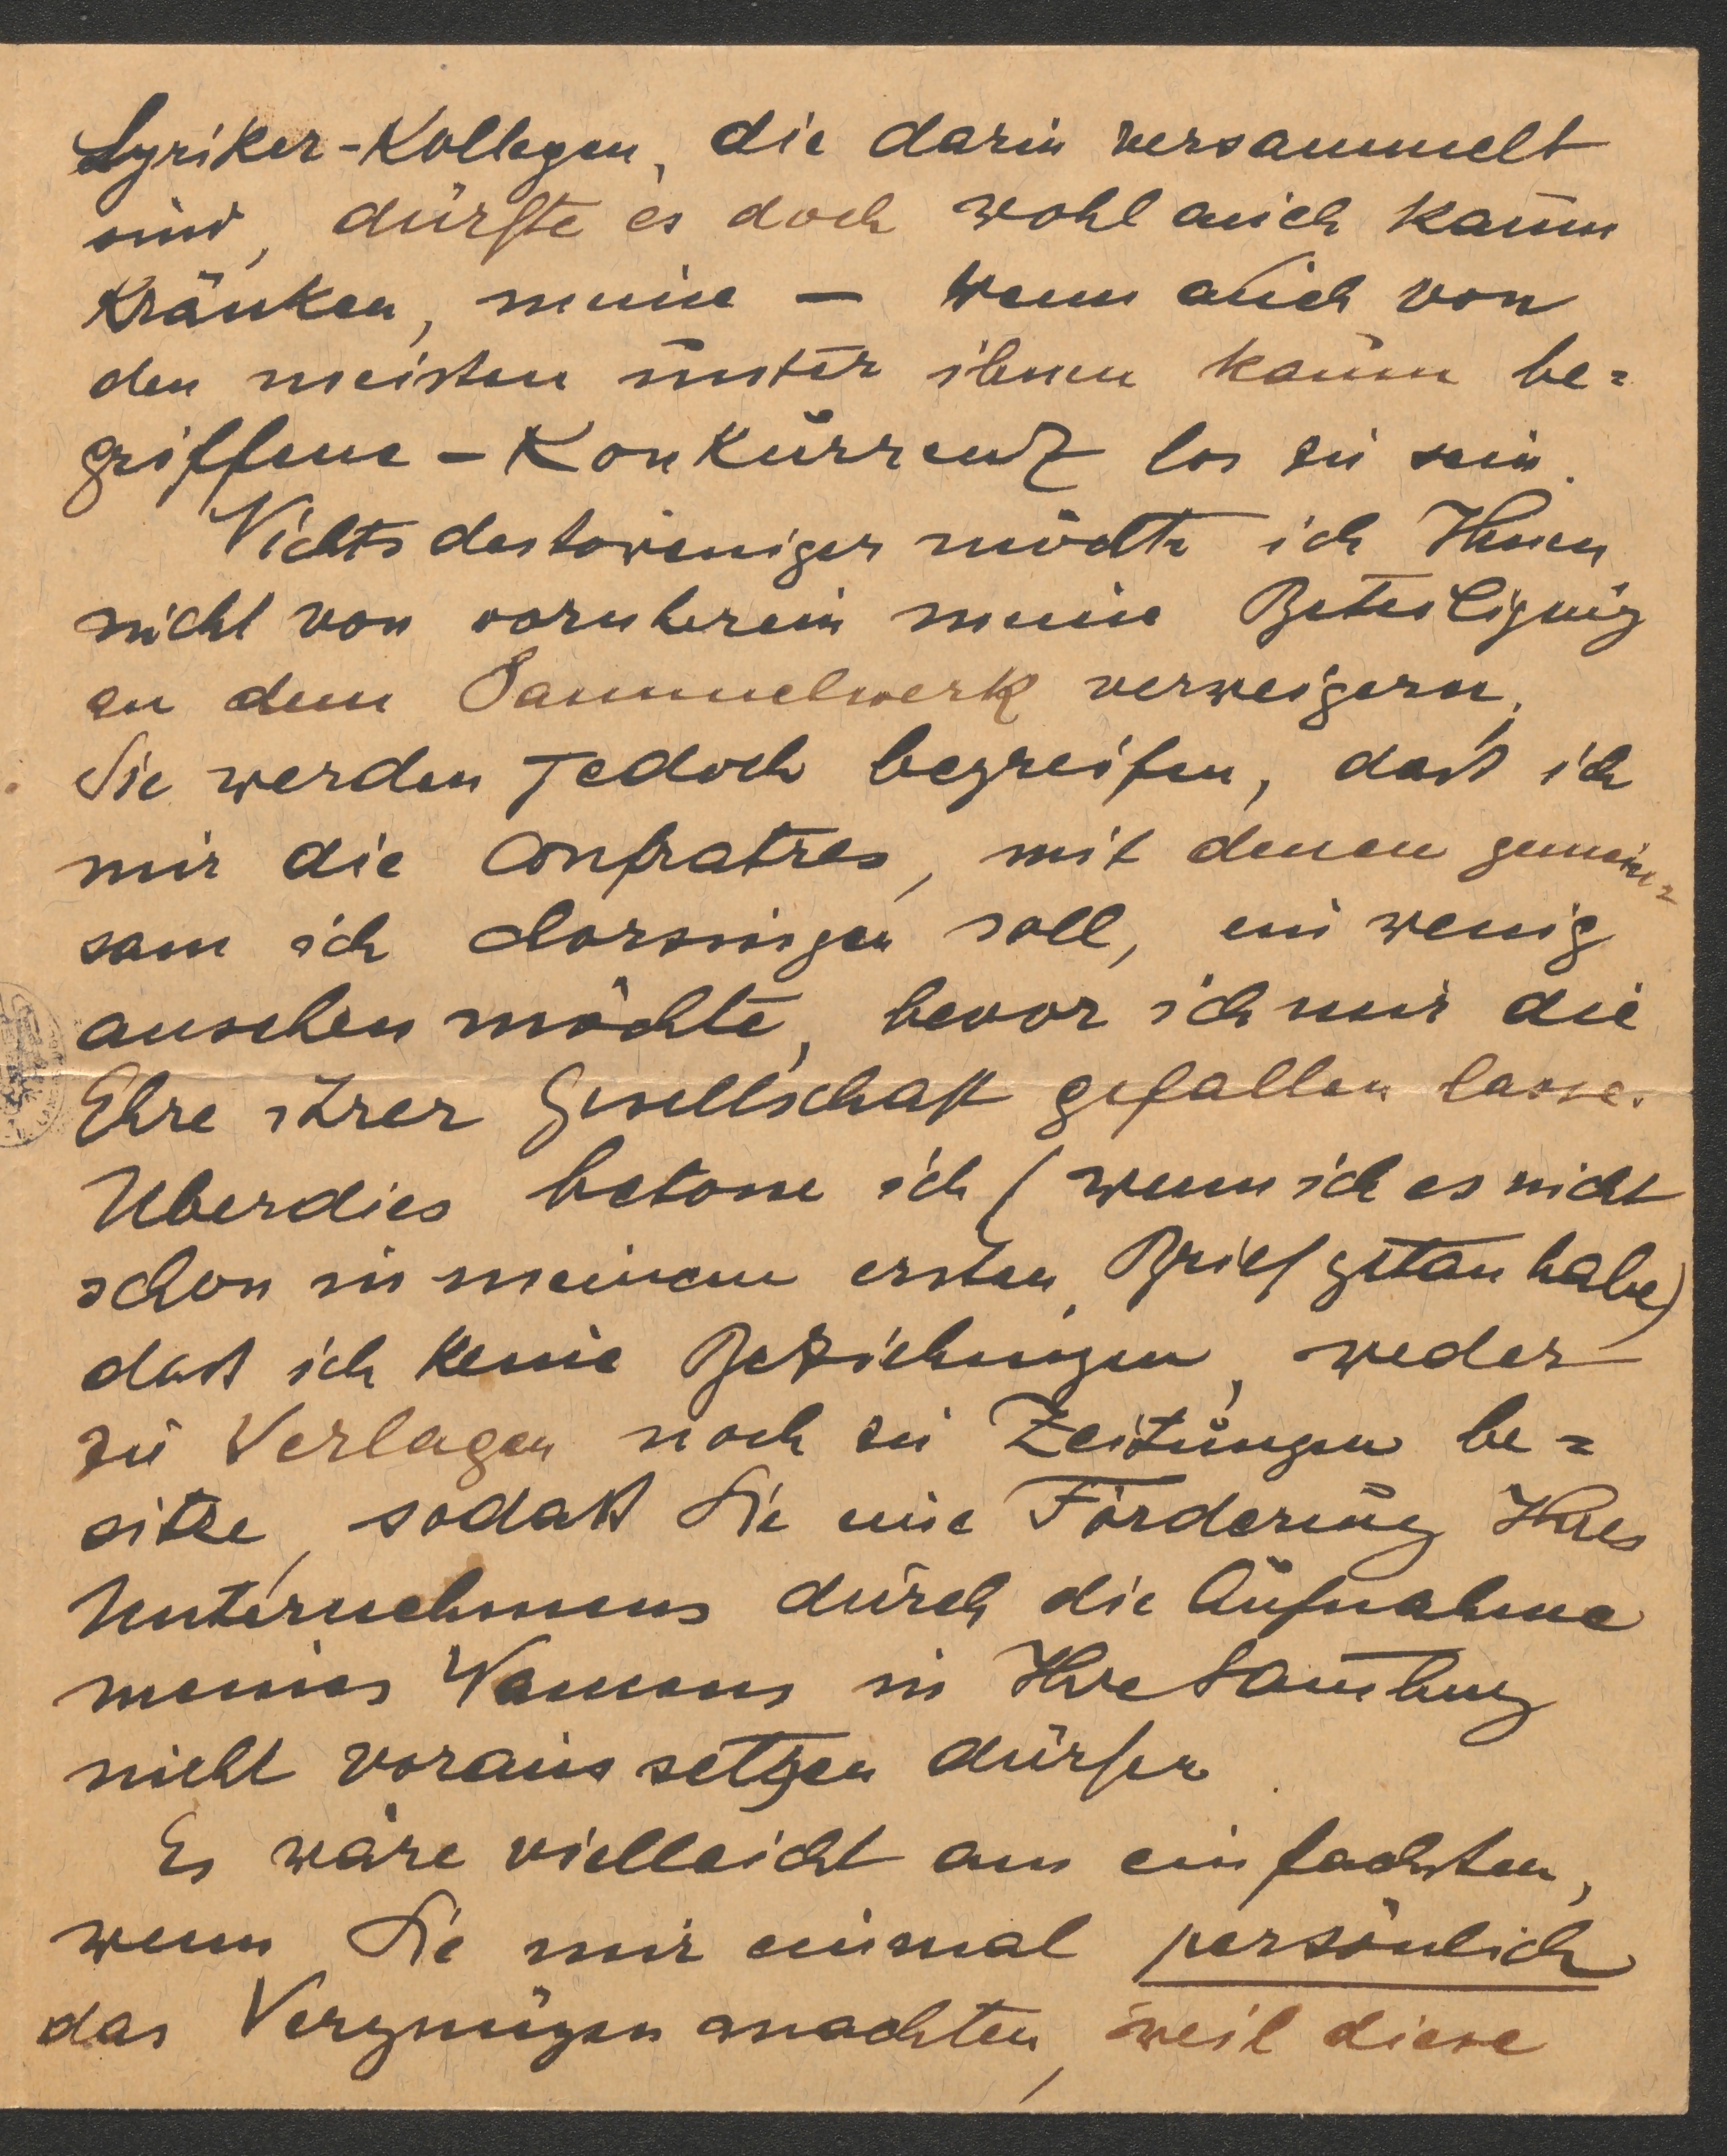 Lyriker-Kollegen, die darin versammelt
sind, dürfte es doch wohl auch kaum
kränken, meine – wenn auch von
den meisten unter ihnen kaum be=
griffene – Konkurrenz los zu sein.
Nichtsdestoweniger möchte ich Ihnen
nicht von vornherein meine Beteiligung
an dem Sammelwerk verweigern.
Sie werden jedoch begreifen, daß ich
mir die Confratres, mit denen gemein=
sam ich chorsingen soll, ein wenig
ansehen möchte, bevor ich mir die
Ehre ihrer Gesellschaft gefallen lasse.
Uberdies betone ich (wenn ich es nicht
schon in meinem ersten Brief getan habe)
daß ich keine Beziehungen, weder
zu Verlagen noch zu Zeitungen be=
sitze, sodaß Sie eine Förderung Ihres
Unternehmens durch die Aufnahme
meines Namens in Ihre Samlung
nicht voraussetzen dürfen.
Es wäre vielleicht am einfachsten,
wenn Sie mir einmal persönlich
das Vergnügen machten, weil diese